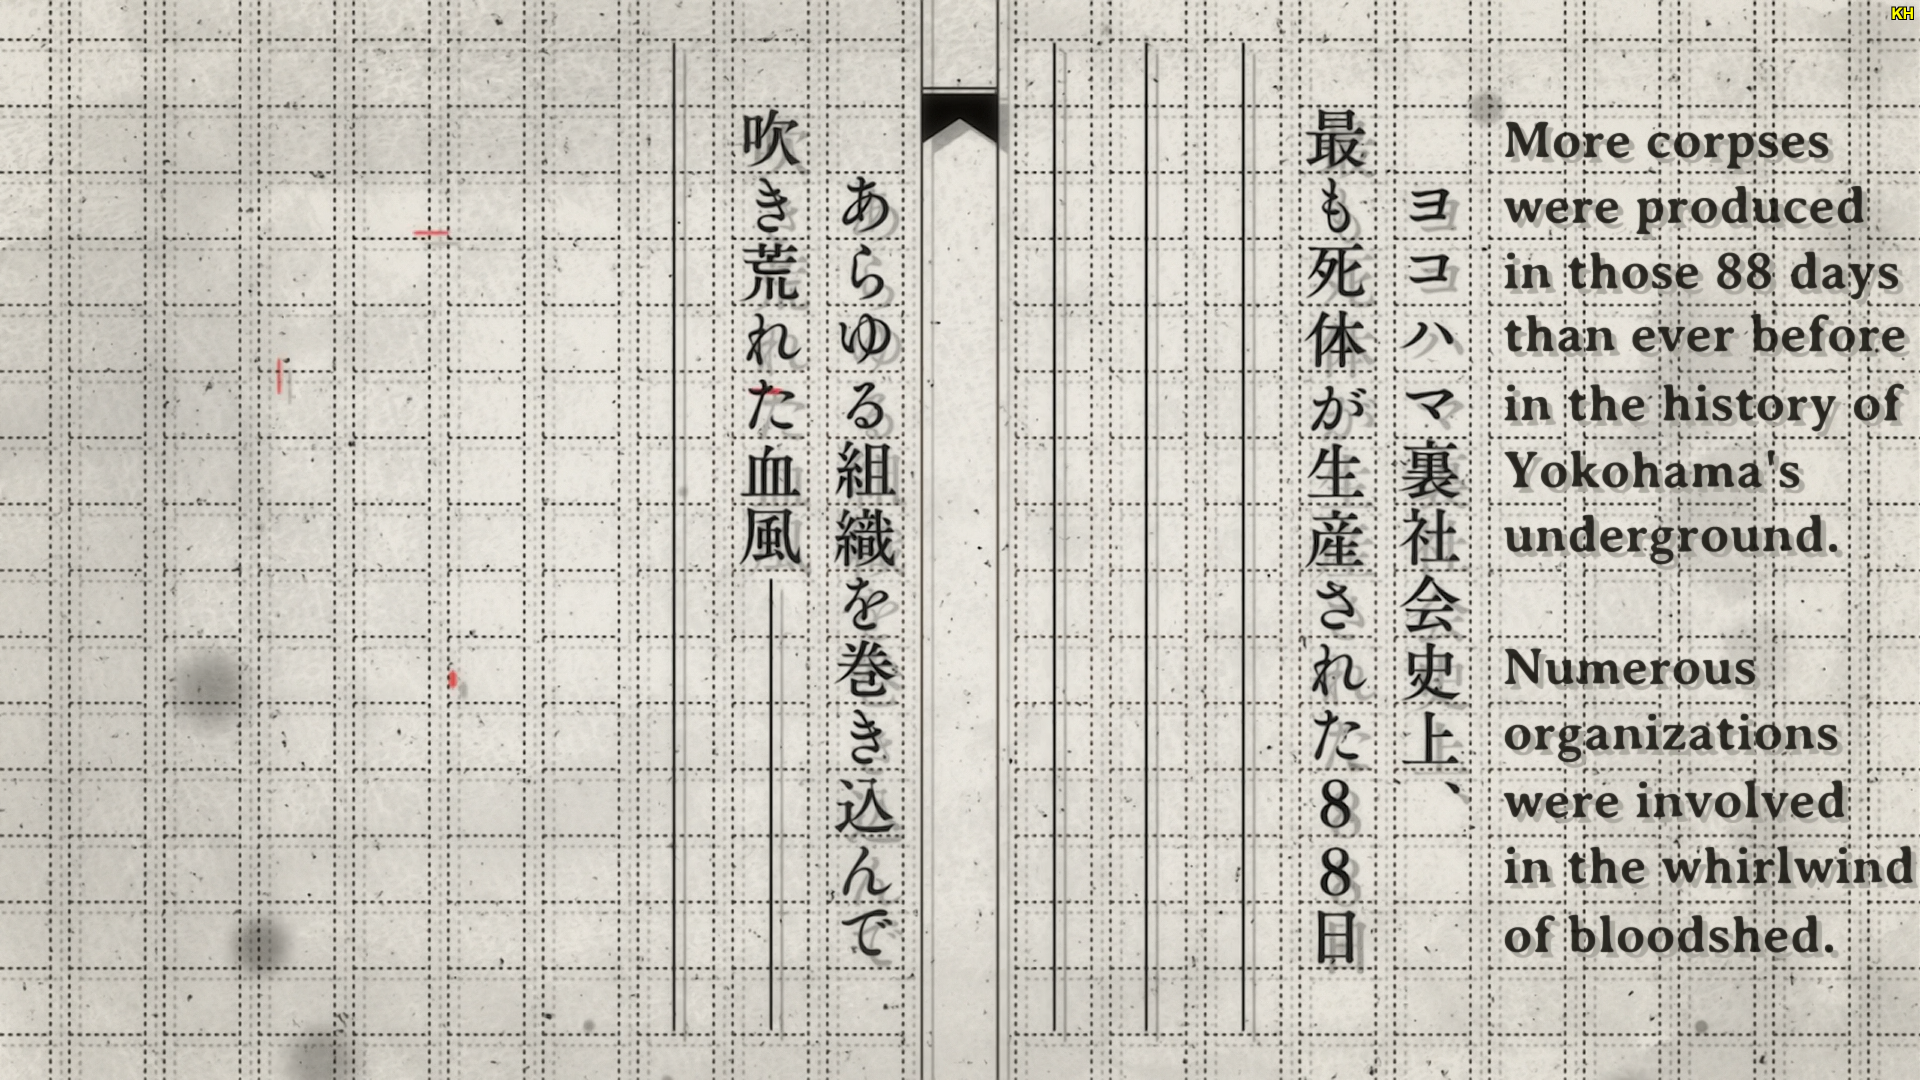 KH
ヨコハマ裏社会史上、
最も死体が生産された88日
あらゆる組織を巻き込んで
吹き荒れた血風―――
More corpses
were produced
in those 88 days
than ever before
in the history of
Yokohama's
underground.
Numerous
organizations
were involved
in the whirlwind
of bloodshed.